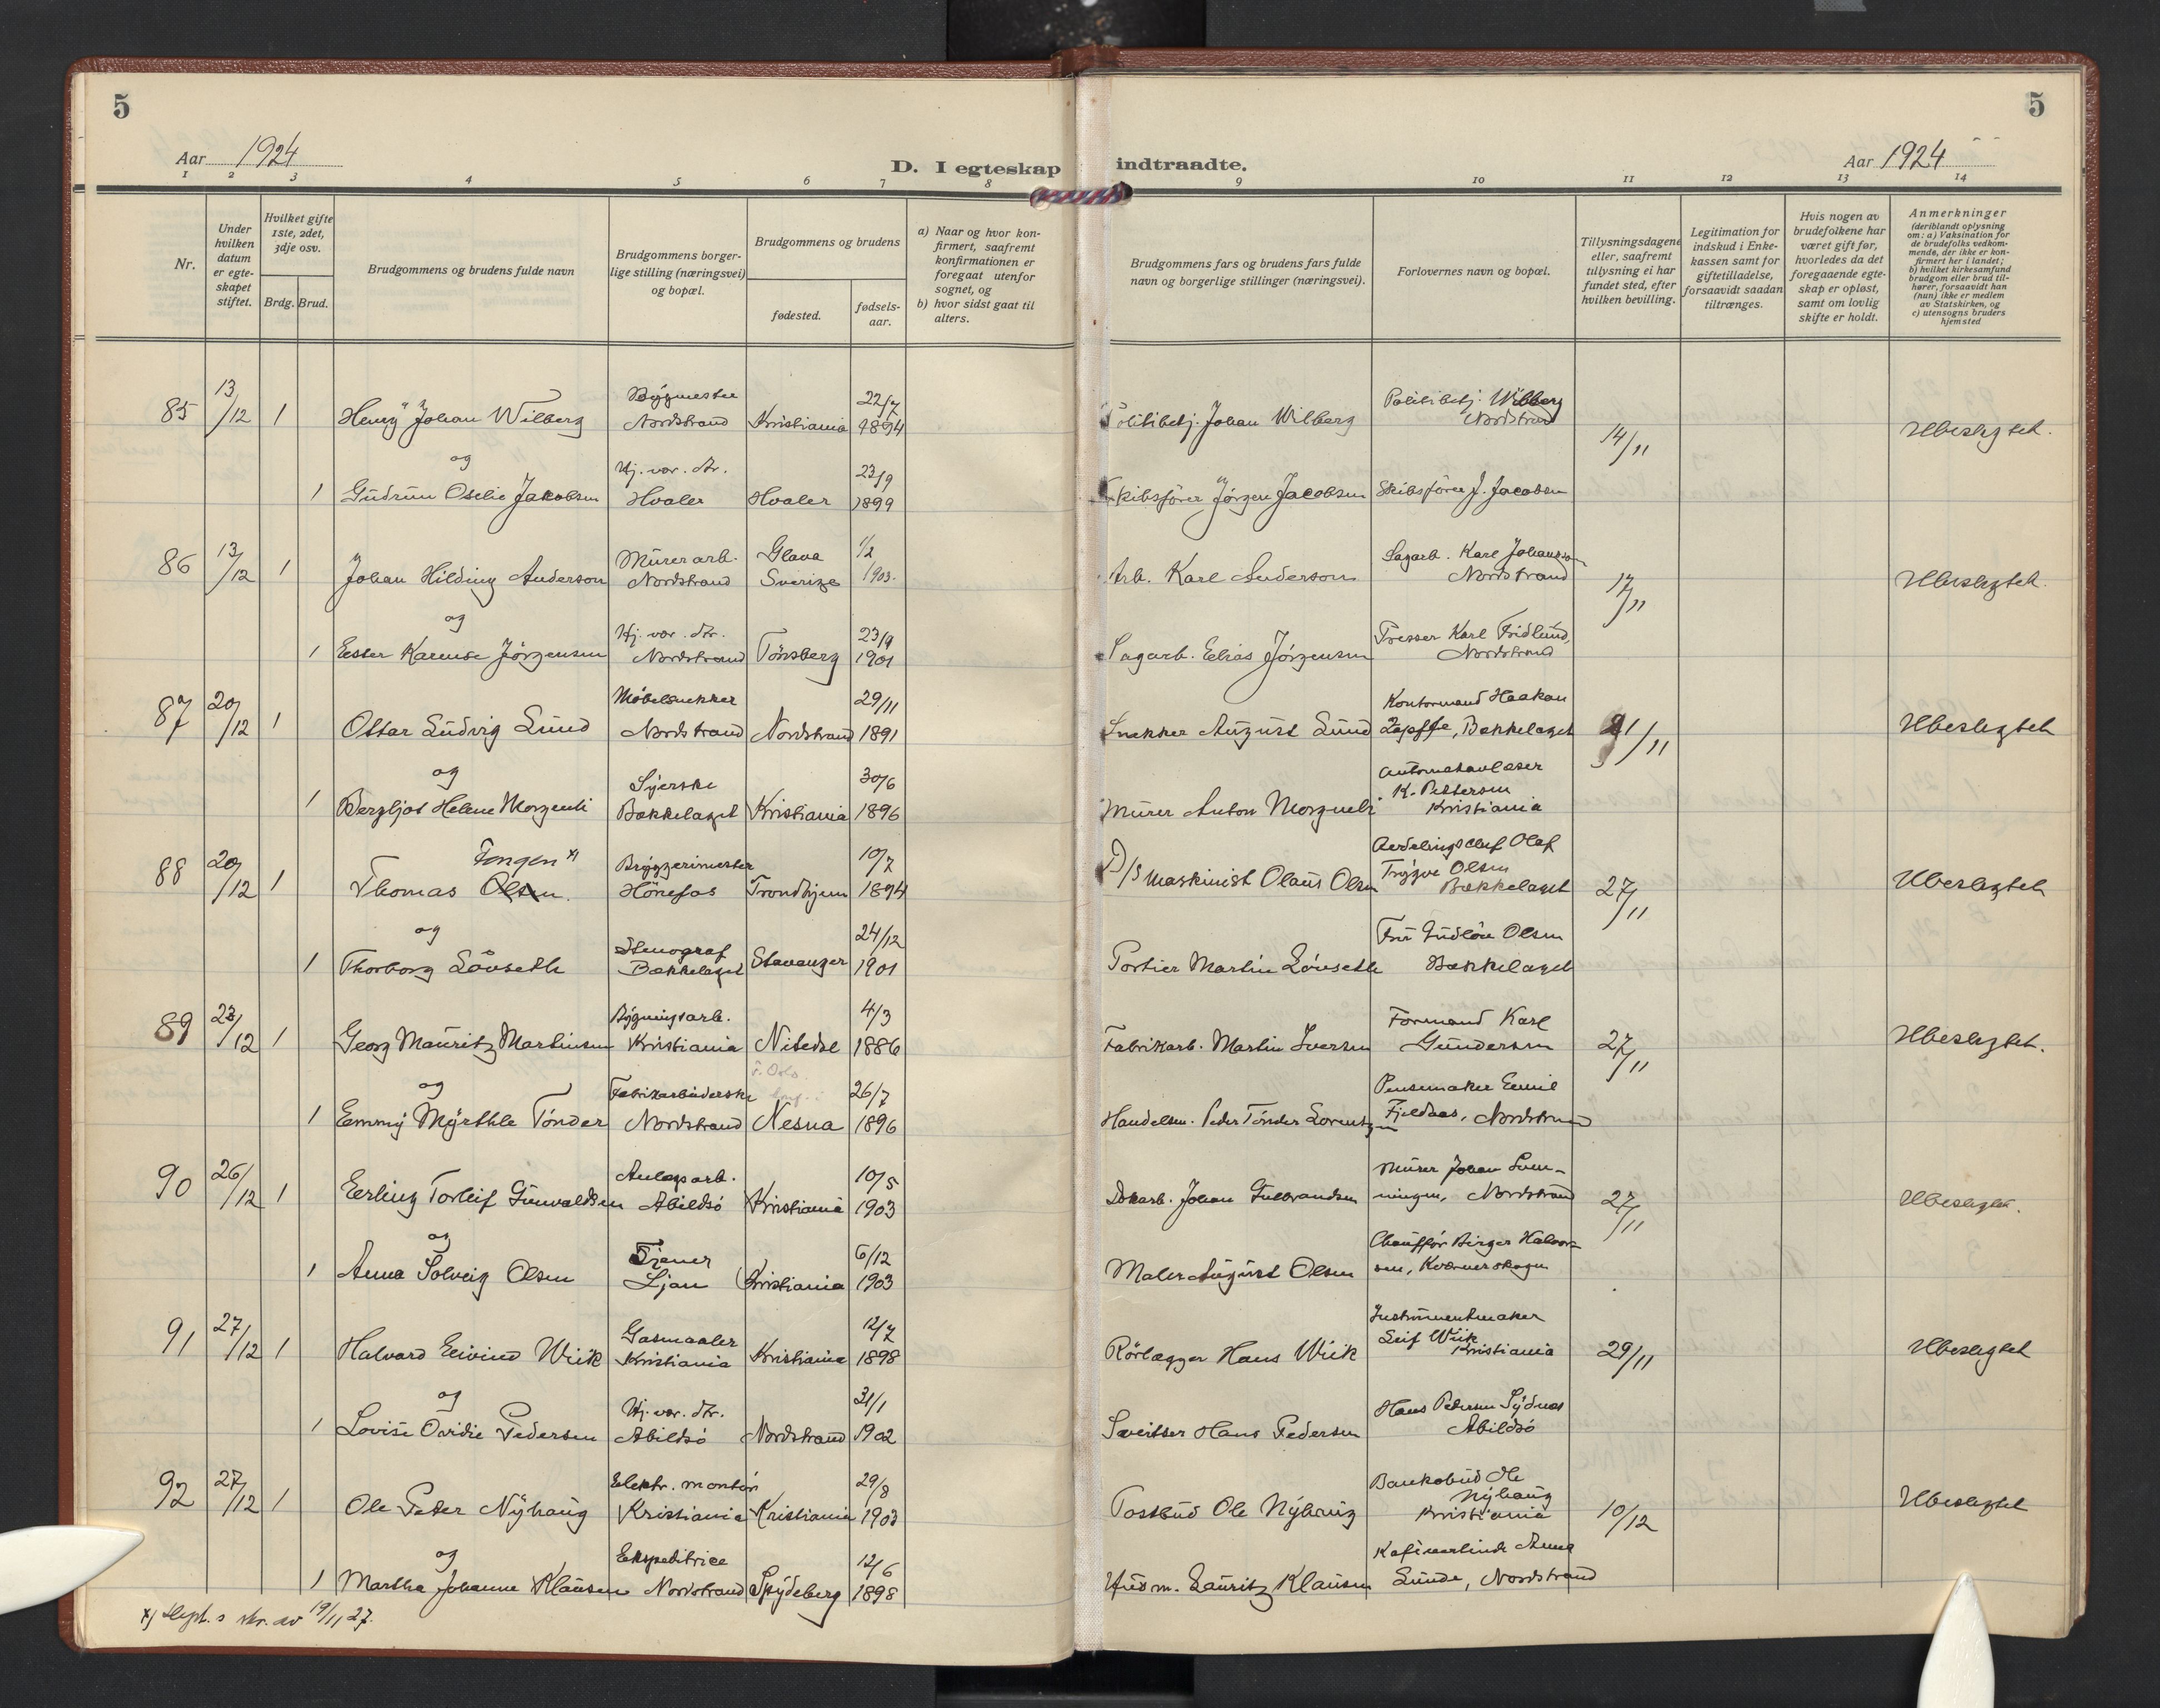 5
5
Aar 1924
D. I egteskap
indtraadte.
Aar 1924
1 2 3 4 5 6 7 8
9 10 11 12 13 14
Nr.
Under hvilken datum er egte-skapet stiftet.
Hvilket gifte 1ste, 2det, 3dje osv.
Brdg. Brud.
Brudgommens og brudens fulde navn
Brudgommens borger-lige stilling (næringsvei) og bopæl.
Brudgommens og brudens
fødested.
fødsels-aar.
a) Naar og hvor kon-firmert, saafremt konfirmationen er foregaat utenfor sognet, og
b) hvor sidst gaat til alters.
Brudgommens fars og brudens fars fulde navn og borgerlige stillinger (næringsvei).
Forlovernes navn og bopæl.
Tillysningsdagene eller, saafremt tillysning ei har fundet sted, efter hvilken bevilling.
Legitimation for indskud i Enke-kassen samt for giftetilladelse, forsaavidt saadan tiltrænges.
Hvis nogen av brudefolkene har været gift før, hvorledes da det foregaaende egte-skap er opløst, samt om lovlig skifte er holdt.
Anmerkninger (deriblandt oplysning om: a) Vaksination for de brudefolks vedkom-mende, der ikke er kon-firmert her i landet; b) hvilket kirkesamfund brudgom eller brud til-hører, forsaavidt han (hun) ikke er medlem av Statskirken, og c) utensogns bruders hjemsted
85 13/12 1 Henry Johan Wilberg Bygmester Nordstrand Kristiania 22/7 1894 Politibetj. Johan Wilberg Politibetj. Wilberg Nordstrand 14/11 Ubeslegtet.
og
1 Gudrun Oselie Jakobsen Hj. vær. dtr. Hvaler Hvaler 23/9 1899 Skibsfører Jørgen Jacobsen Skibsfører J. Jacobsen
86 13/12 1 Johan Hilding Anderson Murerarb. Nordstrand Glava Sverige 1/2 1903. Arb. Karl Anderson Sagarb. Karl Johansson Nordstrand 17/11 Ubeslegtet.
og
1 Ester Karense Jörgensen Hj. vær. dtr. Nordstrand Tönsberg 23/9 1901 Sagarb. Elias Jörgensen Presser Karl Fridlund, Nordstrand
87 20/12 1 Ottar Ludvig Lund Møbelsnekker Nordstrand Nordstrand 29/11 1891 Snekker August Lund Kontormand Haakon Zapffe, Bækkelaget 21/11 Ubeslegtet
og
1 Bergljot Helene Morgenli Syerske Bækkelaget Kristiania 30/6 1896 Murer Anton Morgenli Automatavlæser K. Pettersen Kristiania
88 20/12 1 Thomas Olsen. Fongen x) Bryggerimester Hönefos Trondhjem 10/7 1894 D/S Maskinist Olaus Olsen Avdelingschef Olaf Trygve Olsen Bækkelaget 27/11 Ubeslegtet
og
1 Thorborg Lövseth Stenograf Bækkelaget Stavanger 24/12 1901 Portier Martin Lövseth Fru Gudlöu Olsen Bækkelaget
89 23/12 1 Georg Mauritz Martinsen Bygningsarb. Kristiania Nitedal 4/3 1886 Fabrikarb. Martin Iversen Formand Karl Gundersen 27/11 Ubeslegtet.
og
1 Emmy Myrthle Tönder Fabrikarbeiderske Nordstrand Nesna 26/7 1896 Handelsm. Peder Tönder Lorentzen Pensemaker Emil Fjeldaas, Nordstrand
90 26/12 1 Erling Torleif Gunvaldsen Anlegsarb. Abildsö Kristiania 10/5 1903 Dokarb. Johan Gulbrandsen Murer Johan Svenningen, Nordstrand 27/11 Ubeslegtet.
og
1 Anna Solveig Olsen Tjener Ljan Kristiania 6/12 1903 Maler August Olsen Chauffør Birger Halvorsen, Kværnerskogen
91 27/12 1 Halvard Eivind Wiik Gasmaaler Kristiania Kristiania 12/7 1898 Rörlægger Hans Wiik Instrumentmaker Leif Wiik Kristiania 29/11 Ubeslegtet
og
1 Lovise Ovidie Pedersen Hj. vær. dtr. Abildsö Nordstrand 31/1 1902 Sveitser Hans Pedersen Hans Pedersen Sydnes Abildsö
92 27/12 1 Ole Peter Nyhaug Elektr. montör Kristiania Kristiania 29/8 1903 Postbud Ole Nyhaug Bankobud Ole Nyhaug Kristiania 10/12 Ubeslegtet
og
1 Martha Johanne Klausen Ekspeditrice Nordstrand Spydeberg 12/6 1898 Husm. Lauritz Klausen Kafeværtinde Anna Lunde, Nordstrand
x) Dept.s skr. av 19/11 27.